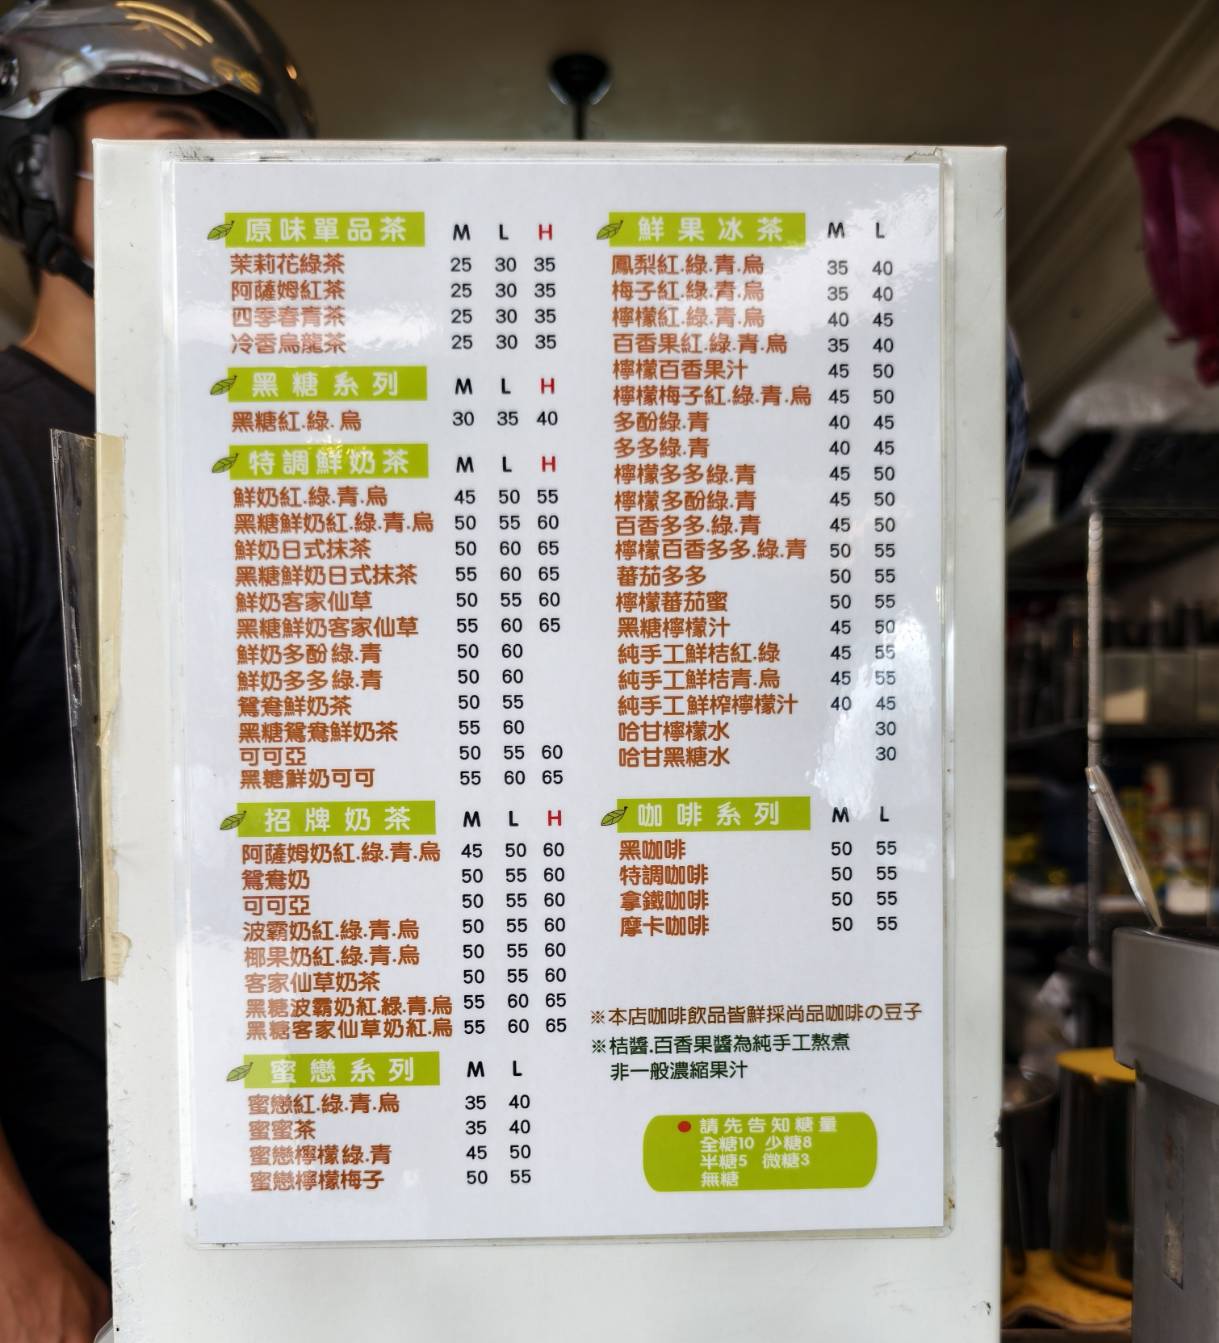 原味單品茶 M L H
茉莉花綠茶 25 30 35
阿薩姆紅茶 25 30 35
四季春青茶 25 30 35
冷香烏龍茶 25 30 35
黑糖系列 M L H
黑糖紅.綠.烏 30 35 40
特調鮮奶茶 M L H
鮮奶紅.綠.青.烏 45 50 55
黑糖鮮奶紅.綠.青.烏 50 55 60
鮮奶日式抹茶 50 60 65
黑糖鮮奶日式抹茶 55 60 65
鮮奶客家仙草 50 55 60
黑糖鮮奶客家仙草 55 60 65
鮮奶多酚綠.青 50 60
鮮奶多多綠.青 50 60
鴛鴦鮮奶茶 50 55
黑糖鴛鴦鮮奶茶 55 60
可可亞 50 55 60
黑糖鮮奶可可 55 60 65
招牌奶茶 M L H
阿薩姆奶紅.綠.青.烏 45 50 60
鴛鴦奶 50 55 60
可可亞 50 55 60
波霸奶紅.綠.青.烏 50 55 60
椰果奶紅.綠.青.烏 50 55 60
客家仙草奶茶 50 55 60
黑糖波霸奶紅.綠.青.烏 55 60 65
黑糖客家仙草奶紅.烏 55 60 65
蜜戀系列 M L
蜜戀紅.綠.青.烏 35 40
蜜蜜茶 35 40
蜜戀檸檬綠.青 45 50
蜜戀檸檬梅子 50 55
鮮果冰茶 M L
鳳梨紅.綠.青.烏 35 40
梅子紅.綠.青.烏 35 40
檸檬紅.綠.青.烏 40 45
百香果紅.綠.青.烏 35 40
檸檬百香果汁 45 50
檸檬梅子紅.綠.青.烏 45 50
多酚綠.青 40 45
多多綠.青 40 45
檸檬多多綠.青 45 50
檸檬多酚綠.青 45 50
百香多多.綠.青 45 50
檸檬百香多多.綠.青 50 55
蕃茄多多 50 55
檸檬蕃茄蜜 50 55
黑糖檸檬汁 45 50
純手工鮮桔紅.綠 45 55
純手工鮮桔青.烏 45 55
純手工鮮榨檸檬汁 40 45
哈甘檸檬水 30
哈甘黑糖水 30
咖啡系列 M L
黑咖啡 50 55
特調咖啡 50 55
拿鐵咖啡 50 55
摩卡咖啡 50 55
※本店咖啡飲品皆鮮採尚品咖啡の豆子
※桔醬.百香果醬為純手工熬煮
非一般濃縮果汁
請先告知糖量
全糖10 少糖8
半糖5 微糖3
無糖